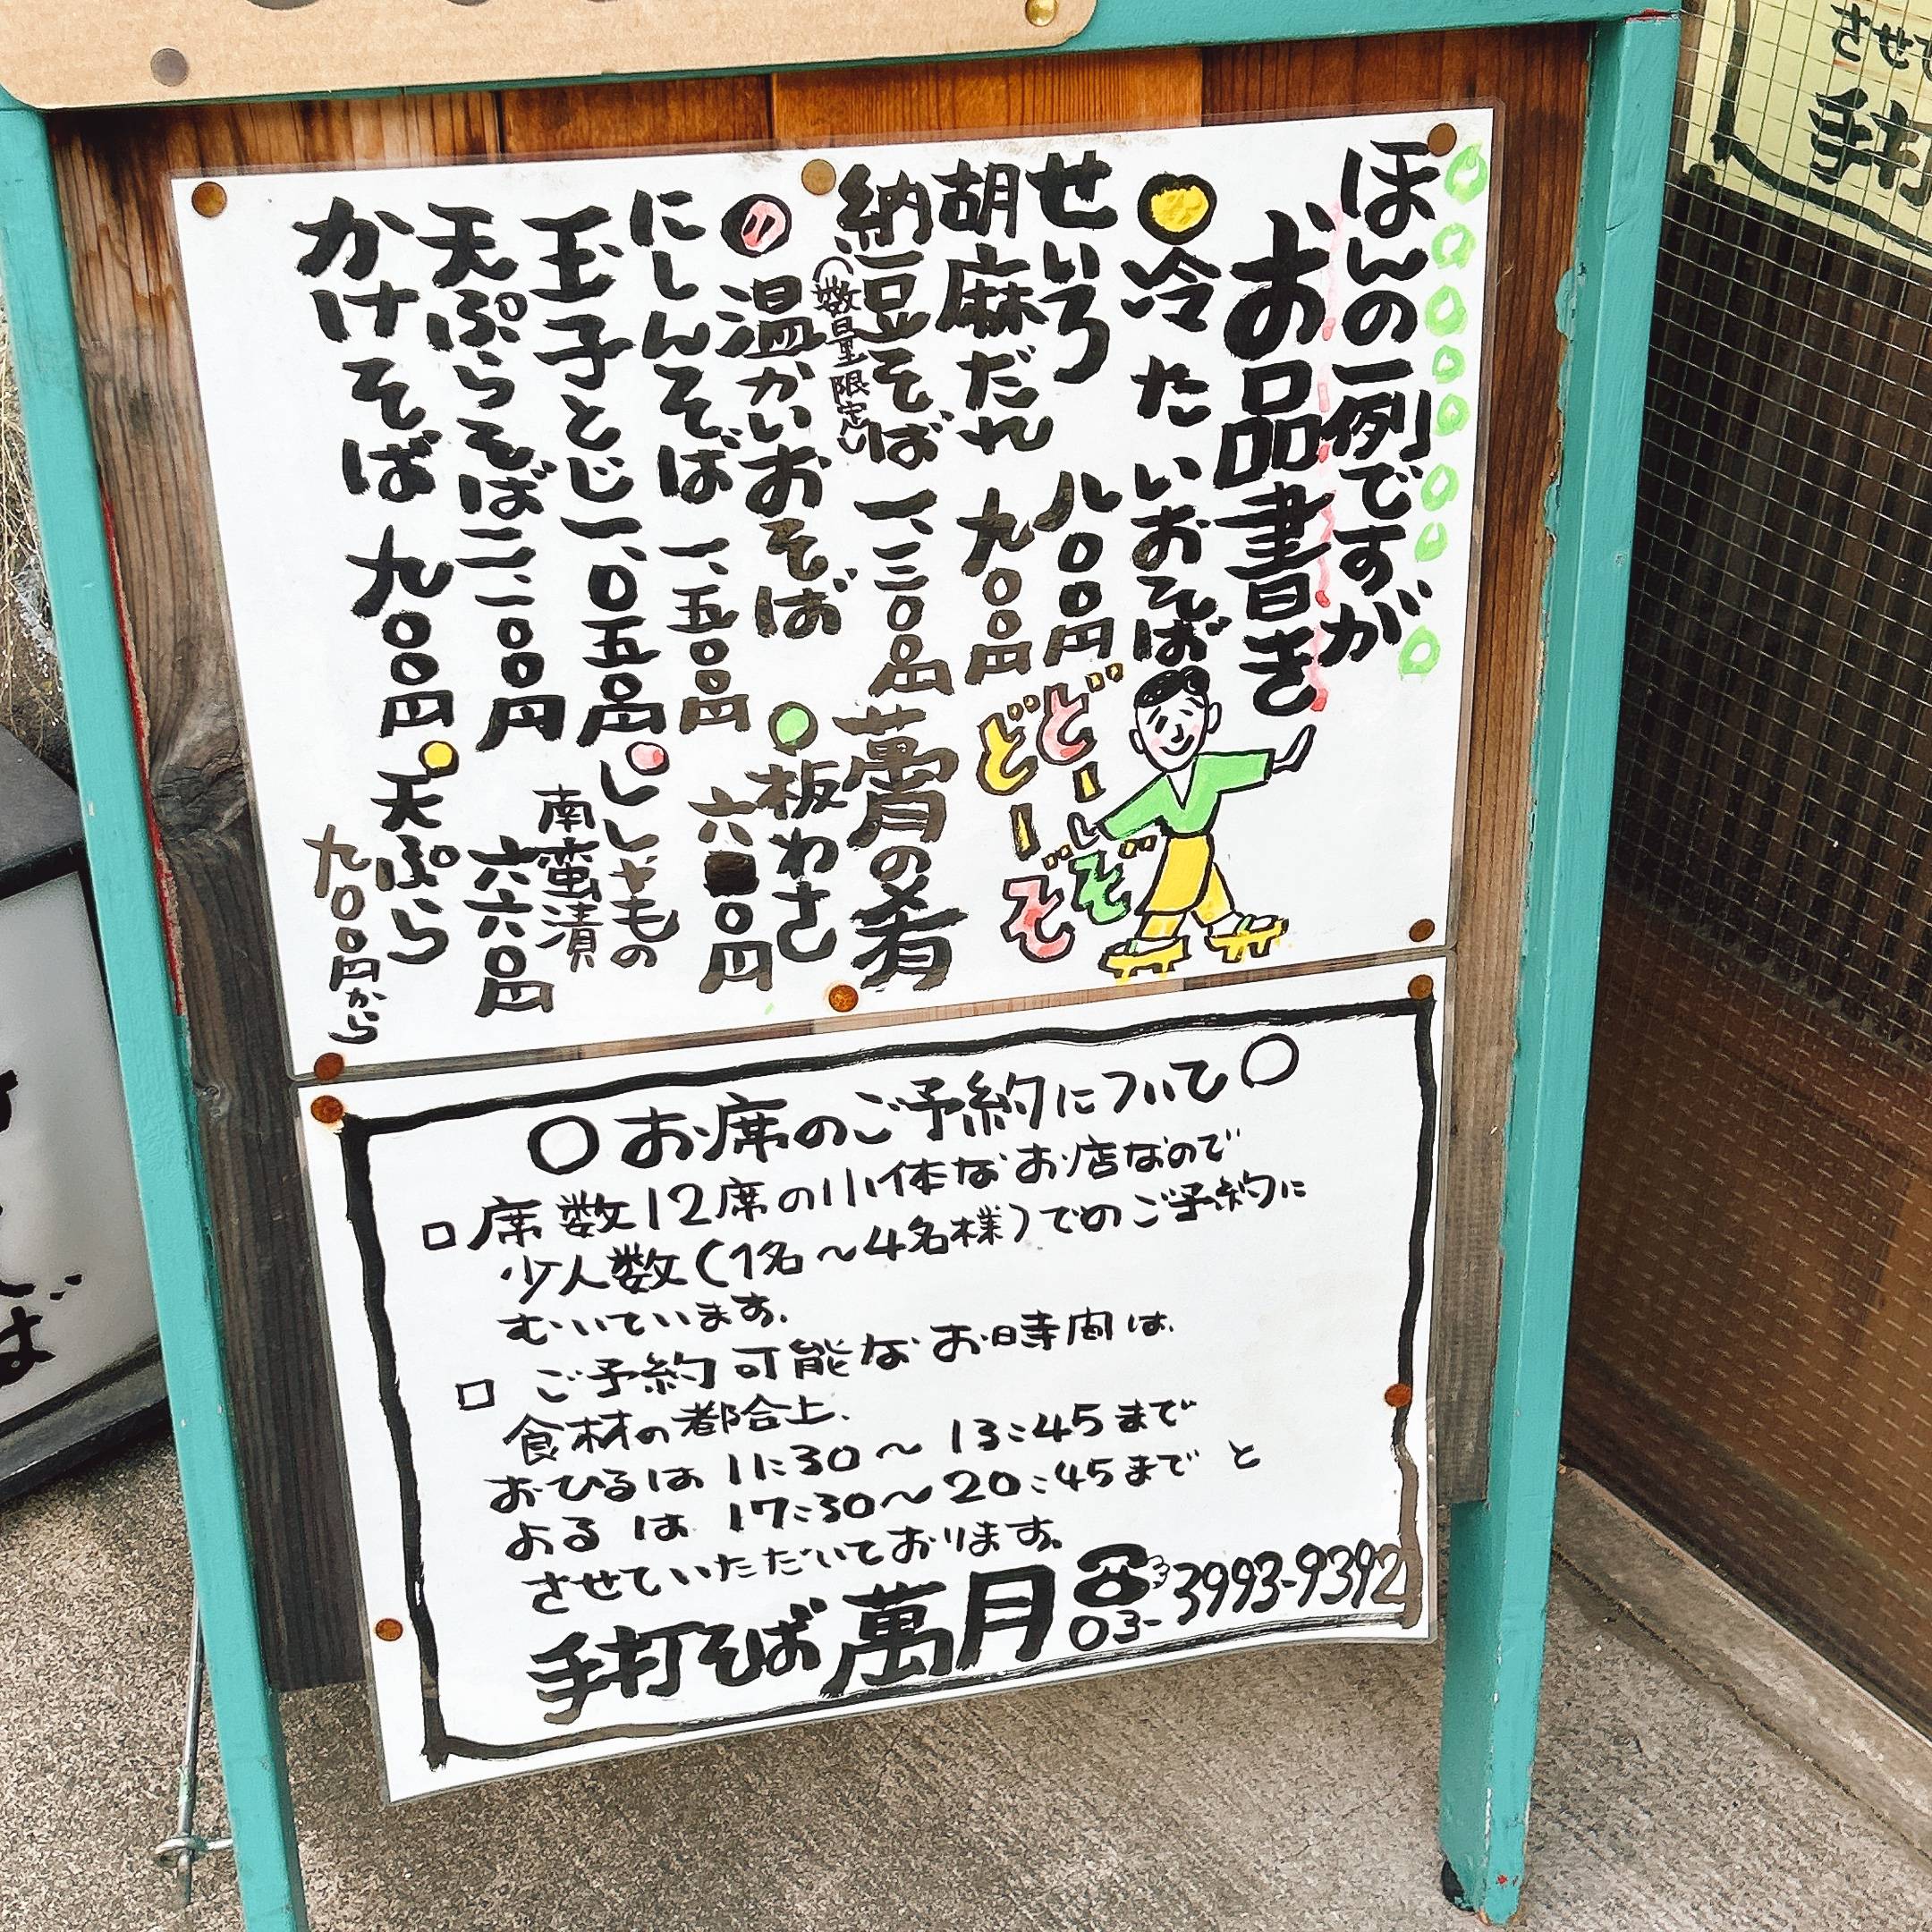 ほんの一例ですが
お品書き
冷たいおそば
せいろ 八〇〇円
胡麻だれ 九〇〇円
納豆そば 一、三〇〇円
(数量限定)
温かいおそば
にしんそば 一、五〇〇円
玉子とじ 一、〇五〇円
天ぷらそば 二、一〇〇円
かけそば 九〇〇円
どーぞ
どーぞ
蕎の肴
板わさ
六〇円
ししゃもの
南蛮漬
六六〇円
天ぷら
九〇〇円から
〇お席のご予約について〇
□席数12席の小体なお店なので
少人数(1名〜4名様)でのご予約に
むいています。
□ご予約可能なお時間は、
食材の都合上、
おひるは 11:30〜13:45まで
よるは 17:30〜20:45までと
させていただいております。
手打そば 萬月 ☎03-3993-9392
させ
手
そば